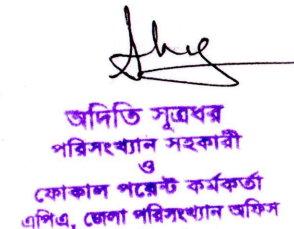 অদিতি সূত্রধর
পরিসংখ্যান সহকারী
ও
ফোকাল পয়েন্ট কর্মকর্তা
এপিএ, জেলা পরিসংখ্যান অফিস